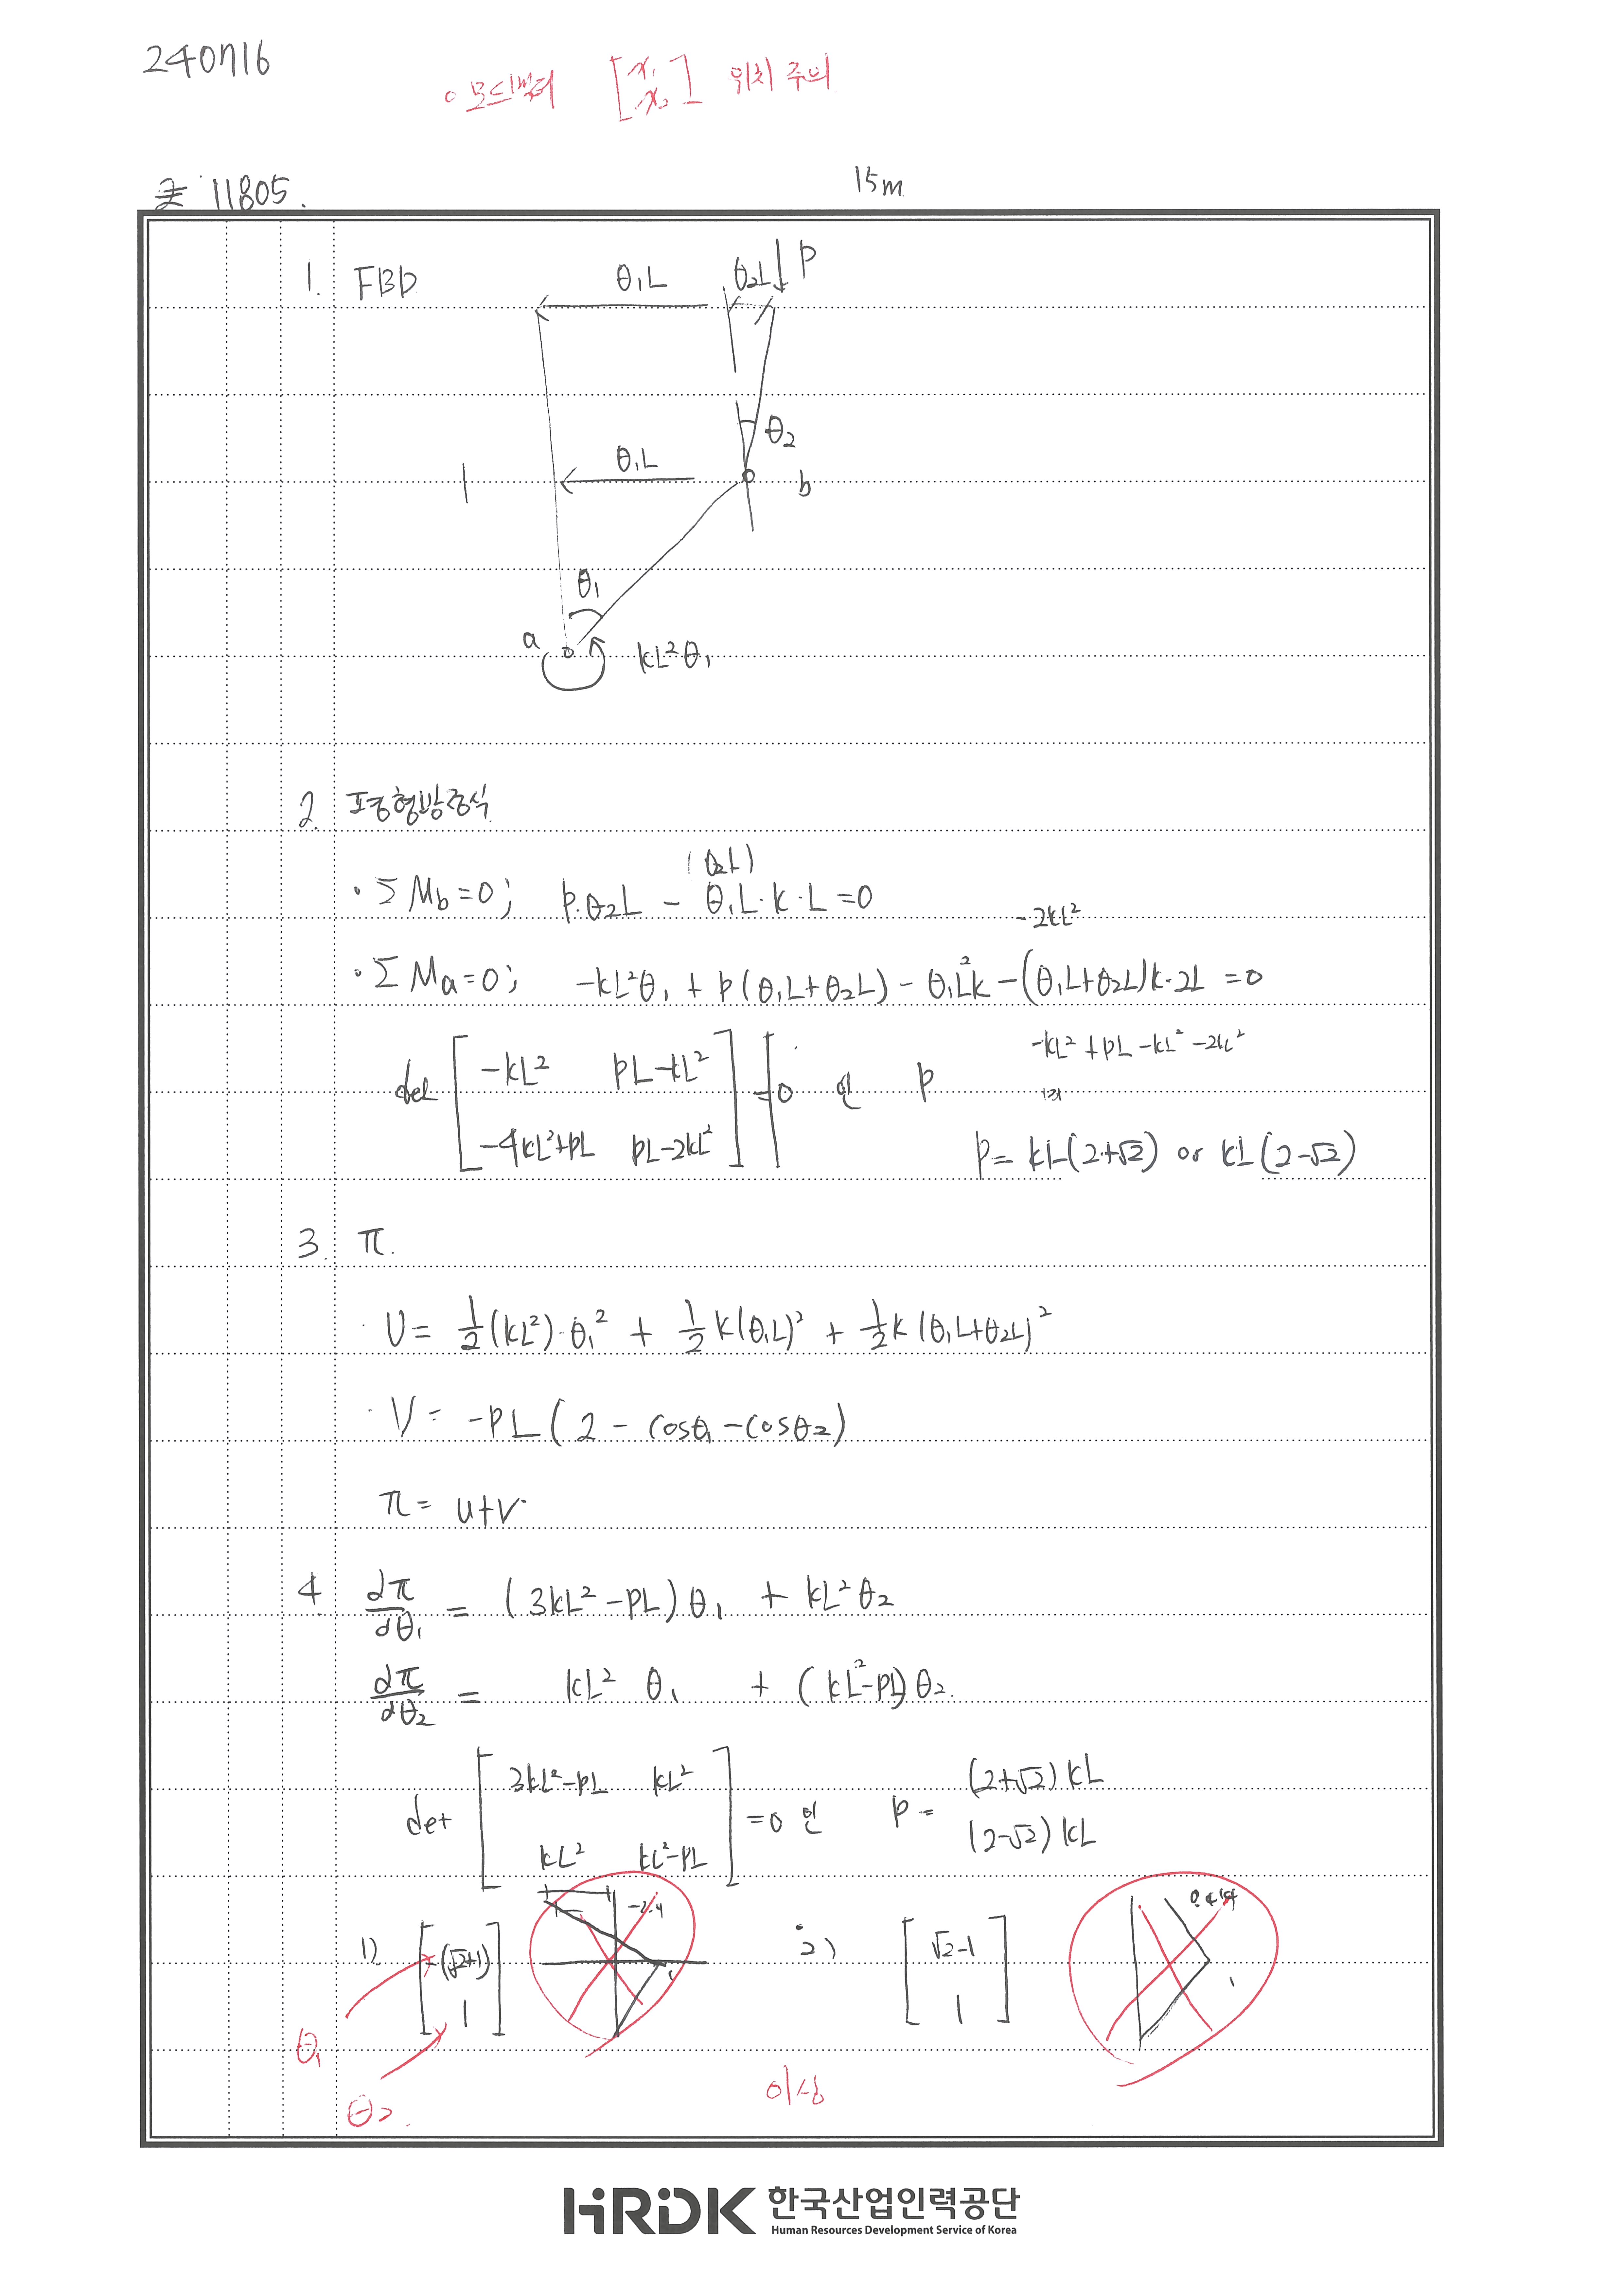 240716
○ 모드벡터 [x₁ x₂] 위치 주의
11805. 15m
1. FBD θ₁L θ₂L P
θ₂
θ₁L b
θ₁
a kL²θ₁
2. 평형방정식
(θ₂L)
· ΣM_b=0; P·θ₂L - θ₁L·k·L=0
-2kL²
· ΣMa=0; -kL²θ₁ + P(θ₁L+θ₂L) - θ₁L²k - (θ₁L+θ₂L)k·2L = 0
-kL²+PL-kL²-2kL²
det [-kL² PL-kL² -4kL²+PL PL-2kL²] =0 인 P
P= kL(2+√2) or kL(2-√2)
3. π.
· U= ½(kL²)·θ₁² + ½k(θ₁L)² + ½k(θ₁L+θ₂L)²
· V= -PL(2 - cosθ₁ - cosθ₂)
π= U+V·
4. dπ/dθ₁ = (3kL²-PL)θ₁ + kL²θ₂
dπ/dθ₂ = kL² θ₁ + (kL²-PL)θ₂.
det [3kL²-PL kL² kL² kL²-PL] =0 인 P= (2+√2)kL (2-√2)kL
1) [-(√2+1) 1] -2.4 2) [√2-1 1] 1
θ₁
θ₂
이상
HRDK 한국산업인력공단
Human Resources Development Service of Korea